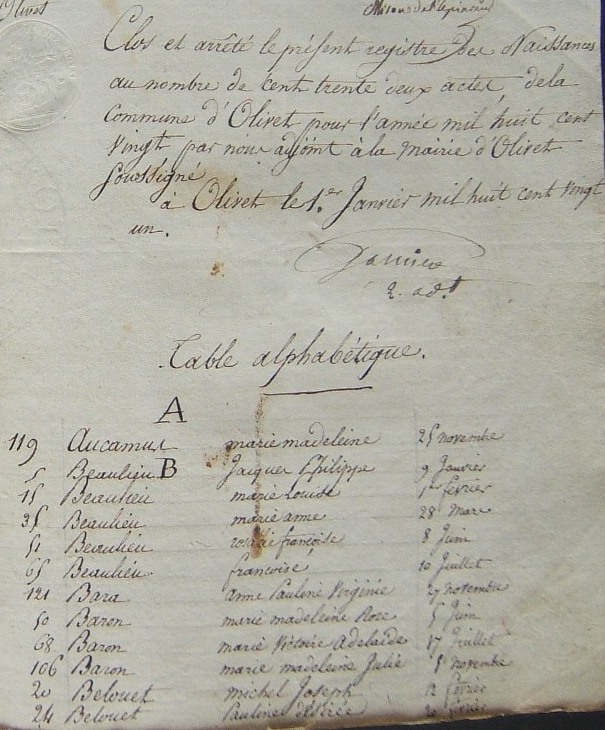 Clos et arrêté le présent registre des Naissances
au nombre de cent trente deux actes, de la
Commune d'Olivet pour l'année mil huit cent
Vingt par nous adjoint à la Mairie d'Olivet
Soussigné
à Olivet le 1.er Janvier mil huit cent vingt
un.
2. adt
Table alphabétique.
A
119 Aucamus marie madeleine 25 novembre
B
5 Beaulieu Jacques Philippe 9 Janvier
15 Beaulieu marie Louise 1er fevrier
35 Beaulieu marie anne 28 Mars
51 Beaulieu rosalie françoise 8 Juin
65 Beaulieu françoise 10 Juillet
121 Bara anne Pauline Virginie 27 novembre
50 Baron marie madeleine Rose 5 Juin
68 Baron marie Victoire Adelaide 17 Juillet
106 Baron marie madeleine Julie 5 novembre
20 Belouet michel Joseph 12 fevrier
24 Belouet Pauline désirée fevrier